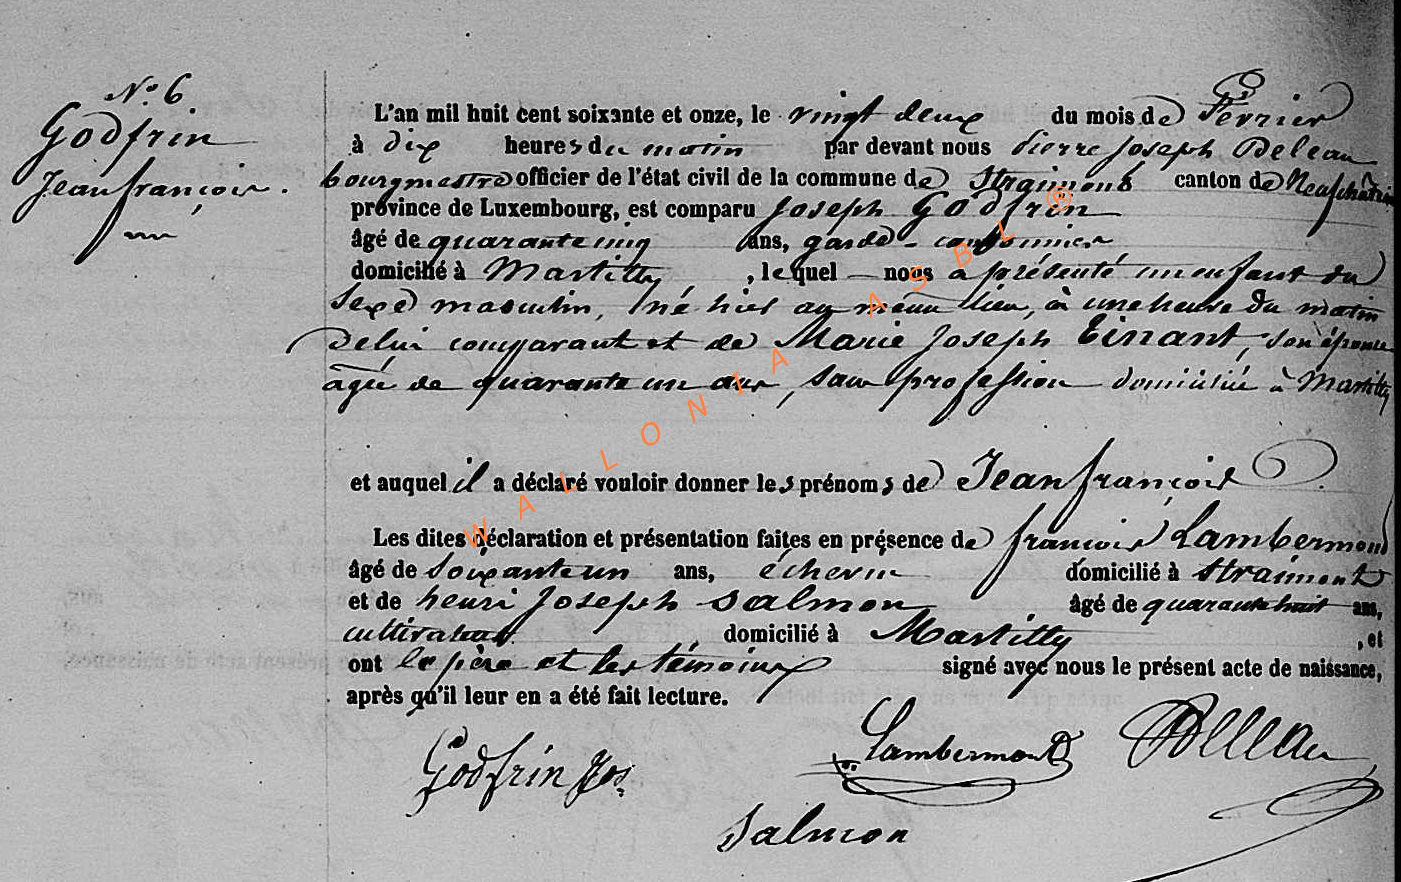 N.o 6.
Godfrin
Jean françois.
L'an mil huit cent soixante et onze, le vingt deux du mois de Février
à dix heures du matin par devant nous Pierre Joseph Deleau
bourgmestre officier de l'état civil de la commune de Straimont canton de Neufchâteau
province de Luxembourg, est comparu Joseph Godfrin
âgé de quarante cinq ans, garde - cantonnier
domicilié à Martilly, lequel nous a présenté un enfant du
sexe masculin, né hier au même lieu, à une heure du matin
de lui comparant et de Marie Joseph Einant, son épouse
âgée de quarante un ans, sans profession domiciliée à Martilly
et auquel il a déclaré vouloir donner les prénoms de Jean françois.
Les dites déclaration et présentation faites en présence de françois Lambermont
âgé de soixante un ans, échevin domicilié à Straimont
et de henri Joseph Salmon âgé de quarante huit ans,
cultivateur domicilié à Martilly, et
ont le père et les témoins signé avec nous le présent acte de naissance,
après qu'il leur en a été fait lecture.
Godfrin Jos
Lambermont
PDeleau
Salmon
WALLONIA ASBL ©